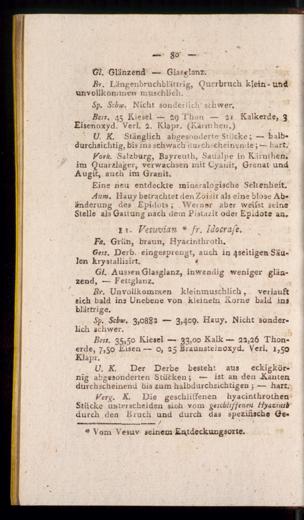 — 80 —
Gl. Glänzend — Glasglanz.
Br. Längenbruchblättrig, Querbruch klein- und
unvollkommen muschlich.
Sp. Schw. Nicht sonderlich schwer.
Best. 45 Kiesel — 29 Thon — 21 Kalkerde, 3
Eisenoxyd. Verl. 2. Klapr. (Kärnthen.)
U. K. Stänglich abgesonderte Stücke; — halb-
durchsichtig, bis ins schwach durchscheinende; — hart.
Vork. Salzburg, Bayreuth, Saualpe in Kärnthen,
im Quarzlager, verwachsen mit Cyanit, Granat und
Augit, auch im Granit.
Eine neu entdeckte mineralogische Seltenheit.
Anm. Hauy betrachtet den Zoisit als eine blose Ab-
änderung des Epidots; Werner aber weifst seine
Stelle als Gattung nach dem Pistazit oder Epidote an.
11. Vesuvian * fr. Idocrase.
Fa. Grün, braun, Hyacinthroth.
Gest. Derb. eingesprengt, auch in 4seitigen Säu-
len krystallisirt.
Gl. Aussen Glasglanz, inwendig weniger glän-
zend, — Fettglanz.
Br. Unvollkommen kleinmuschlich, verläuft
sich bald ins Unebene von kleinem Korne bald ins
blättrige.
Sp. Schw. 3,0882 — 3,409. Hauy. Nicht sonder-
lich schwer.
Best. 35,50 Kiesel — 33,00 Kalk — 22,26 Thon-
erde, 7,50 Eisen — 0, 25 Braunsteinoxyd. Verl. 1,50
Klapr.
U. K. Der Derbe besteht aus eckigkör-
nig abgesonderten Stücken; — ist an den Kanten
durchscheinend bis zum halbdurchsichtigen; — hart.
Verg. K. Die geschliffenen hyacinthrothen
Stücke unterscheiden sich vom geschliffenen Hyacinth
durch den Bruch und durch das spezifische Ge-
* Vom Vesuv seinem Entdeckungsorte.